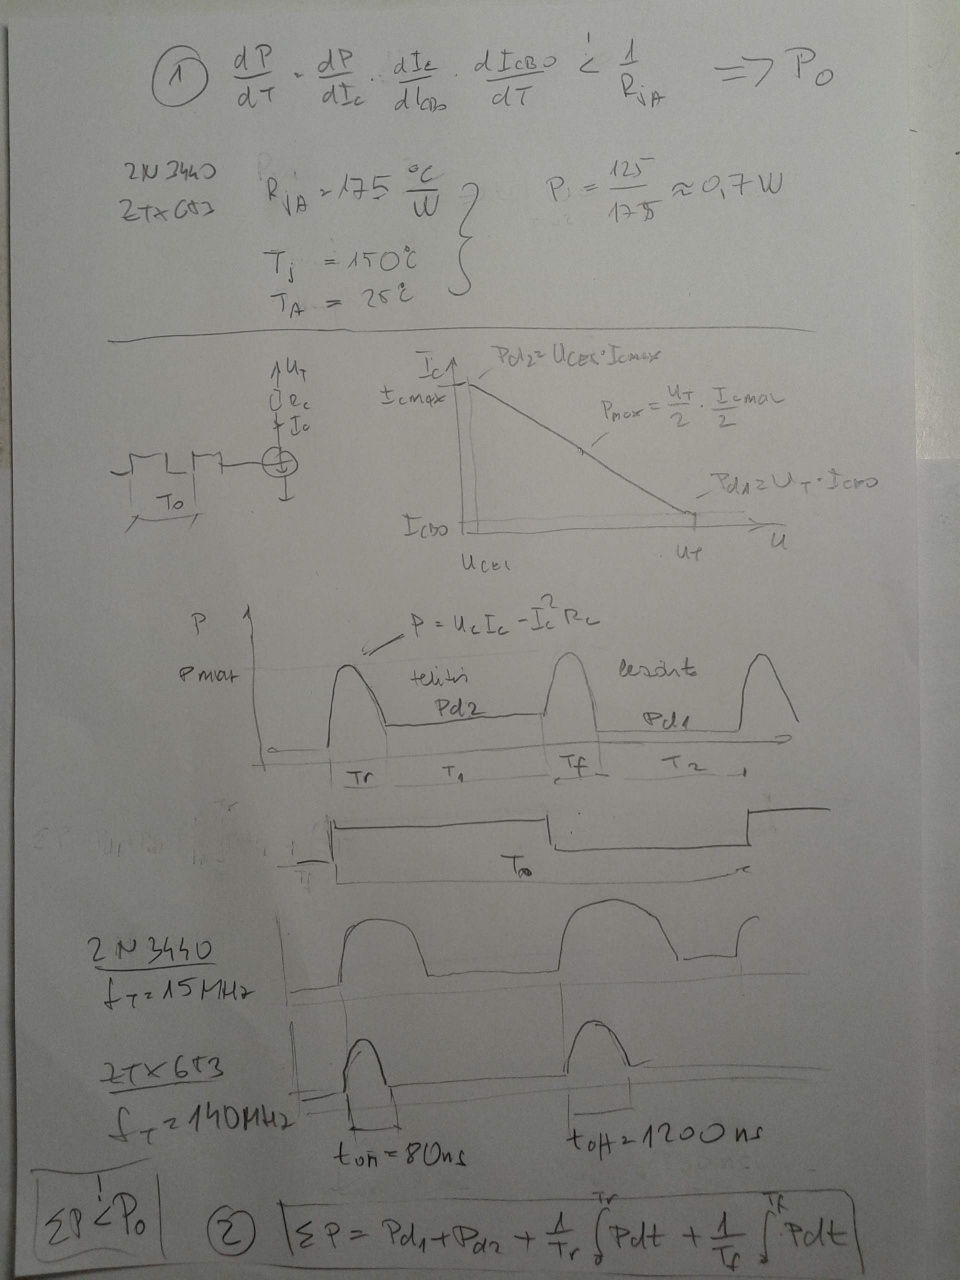 ① dP/dT = dP/dIc · dIc/dIcBo · dIcBo/dT <! 1/RjA ⇒ Po
2N3440
ZTX653
RjA = 175 °C/W
Tj = 150°C
TA = 25°C
P = 125/175 ≈ 0,7W
UT
Rc
Ic
To
Ic
Icmax
Pd2 = Uces·Icmax
Pmax = UT/2 · Icmax/2
Pd1 = UT · ICBO
ICBO
Uces
UT
U
P
Pmax
P = UcIc - Ic²Rc
Pd2
Pd1
Tr
T1
Tf
T2
2N3440
fT = 15MHz
ZTX653
fT = 140MHz
ton = 80ns
toff = 1200ns
ΣP <! Po
② ΣP = Pd1 + Pd2 + 1/Tr ∫Tr Pdt + 1/Tf ∫Tf Pdt